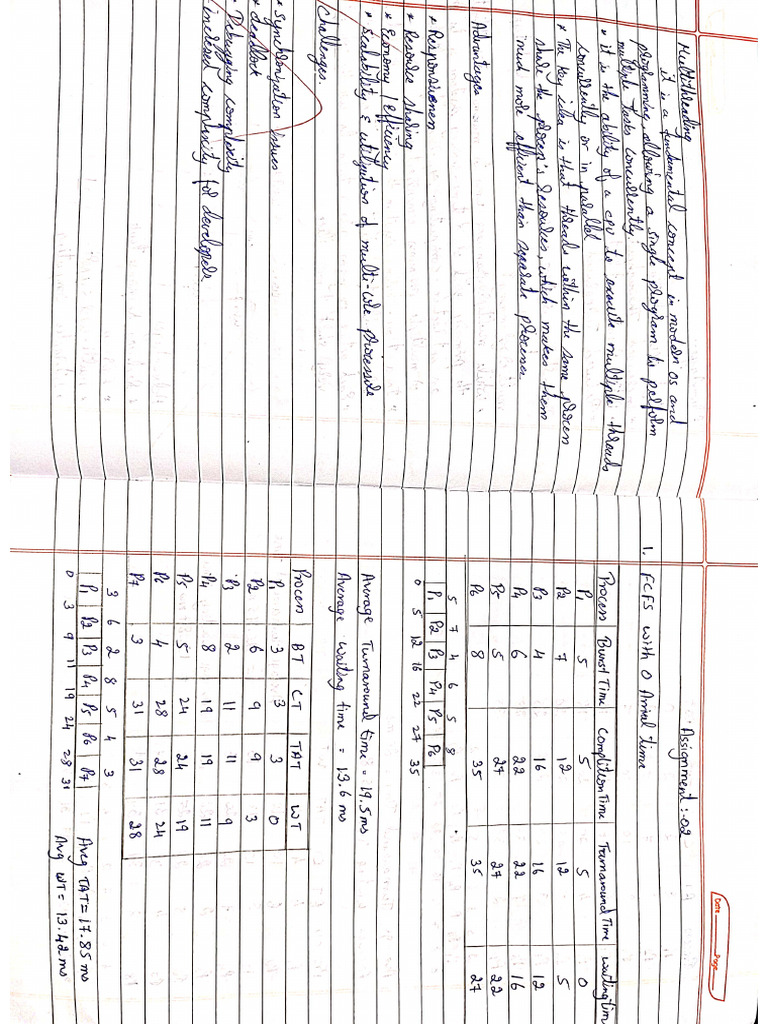 Multithreading
it is a fundamental concept in modern os and
programming, allowing a single program to perform
multiple tasks concurrently
* it is the ability of a cpu to execute multiple threads
concurrently or in parallel
* The key idea is that threads within the same process
share the process's resources, which makes them
much more efficient than separate processes.
Advantages
* Responsiveness
* Resource sharing
* Economy / efficiency
* Scalability & utilization of multi-core processors
Challenges.
* Synchronization issues
* deadlock
* Debugging complexity
- increased complexity for developers
Date Page
Assignment :- 02
1. FCFS with 0 Arrival time
Process Burst Time Completion Time Turnaround Time Waiting time
P1 5 5 5 0
P2 7 12 12 5
P3 4 16 16 12
P4 6 22 22 16
P5 5 27 27 22
P6 8 35 35 27
5 7 4 6 5 8
P1 P2 P3 P4 P5 P6
0 5 12 16 22 27 35
Average Turnaround time = 19.5 ms
Average waiting time = 13.6 ms
Process BT CT TAT WT
P1 3 3 3 0
P2 6 9 9 3
P3 2 11 11 9
P4 8 19 19 11
P5 5 24 24 19
P6 4 28 28 24
P7 3 31 31 28
3 6 2 8 5 4 3
P1 P2 P3 P4 P5 P6 P7
0 3 9 11 19 24 28 31
Avg TAT = 17.85 ms
Avg WT = 13.42 ms